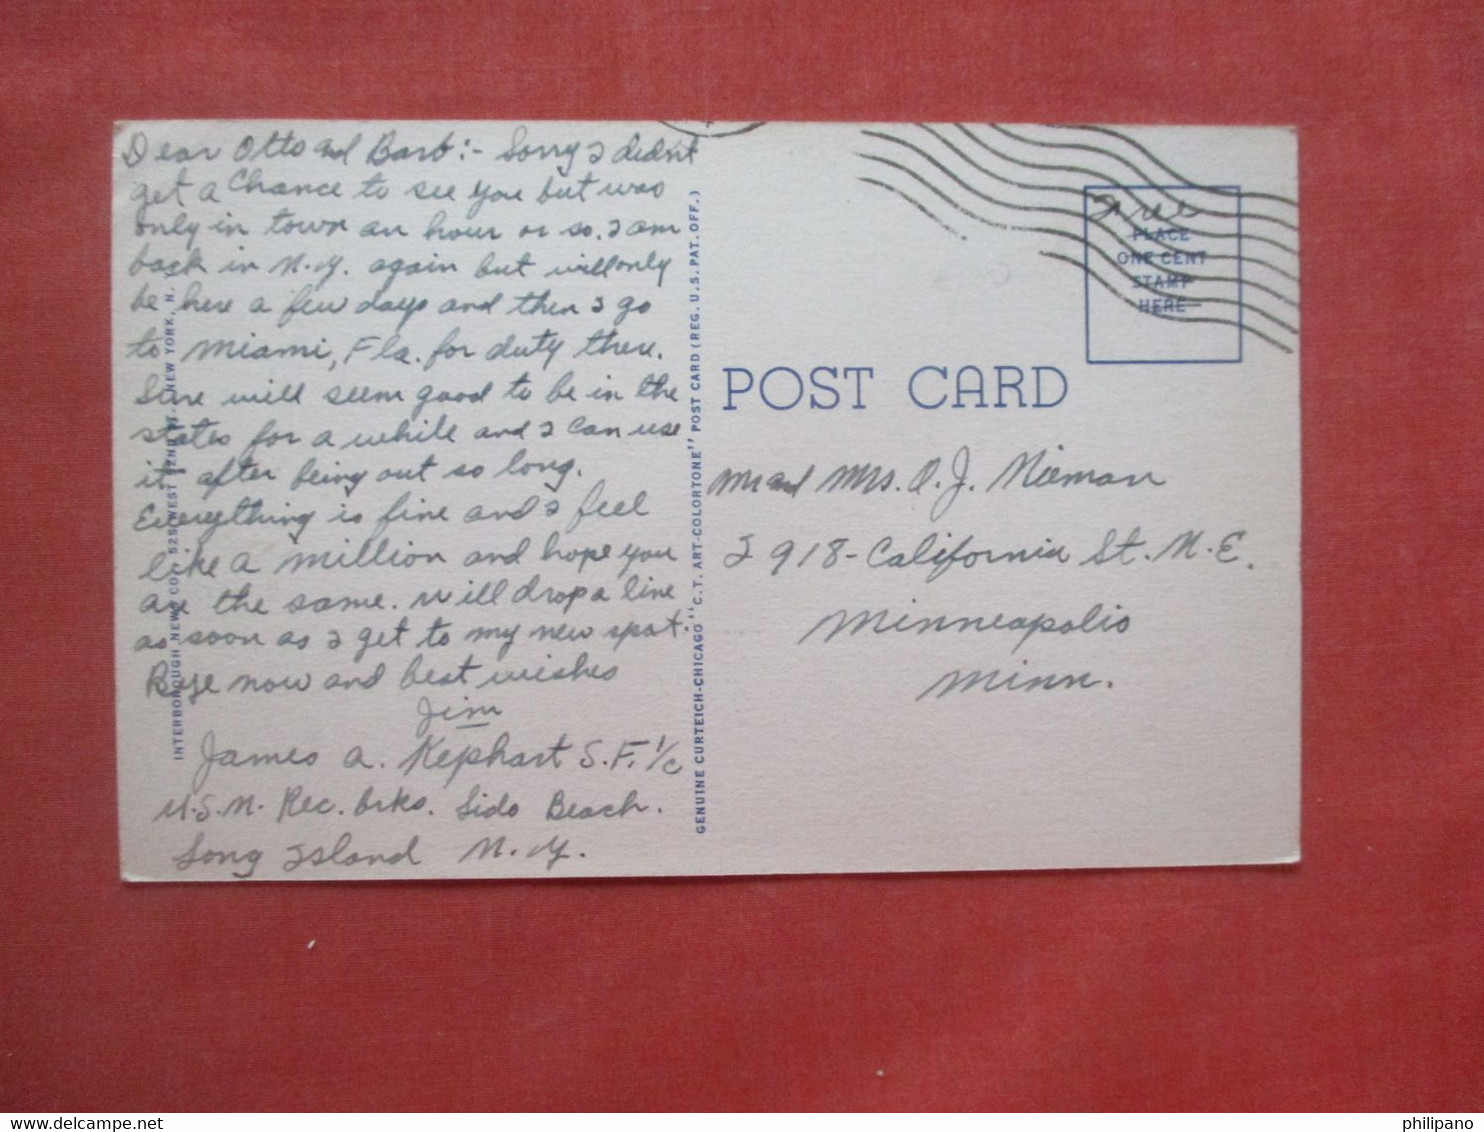 Dear Otto and Barb:- Sorry I didn't
get a chance to see you but was
only in town an hour or so. I am
back in N.Y. again but will only
be here a few days and then I go
to Miami, Fla. for duty there.
Sure will seem good to be in the
states for a while and I can use
it after being out so long.
Everything is fine and I feel
like a million and hope you
are the same. Will drop a line
as soon as I get to my new spot.
Bye now and best wishes
Jim
James A. Kephart S.F. 1/c
U.S.N. Rec. brks. Lido Beach.
Long Island N.Y.
INTERBOROUGH NEWS CO. 525 WEST 52ND ST.-NEW YORK, N.
GENUINE CURTEICH-CHICAGO "C.T. ART-COLORTONE" POST CARD (REG. U.S. PAT. OFF.)
Free
PLACE
ONE CENT
STAMP
HERE
POST CARD
Mr and Mrs. O.J. Nieman
2918-California St. N.E.
Minneapolis
Minn.
http://www.delcampe.net
philipano